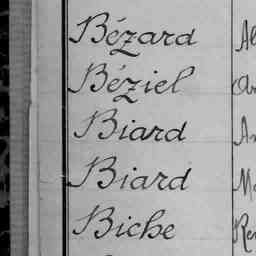 Bézard Al
Béziel
Biard
Biard
Biche